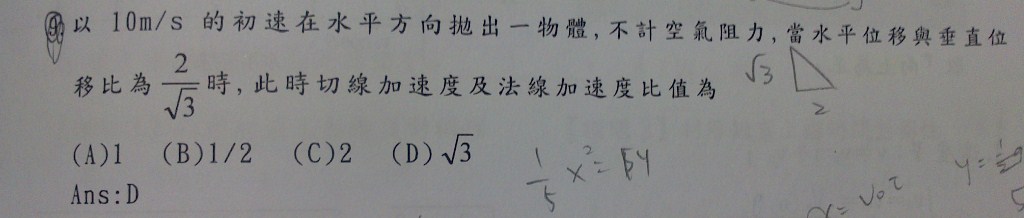 以 10m/s 的初速在水平方向拋出一物體，不計空氣阻力，當水平位移與垂直位
移比為 2/√3 時，此時切線加速度及法線加速度比值為 √3
2
(A)1 (B)1/2 (C)2 (D)√3
Ans:D
1/5 x²=
x= V₀t
y=